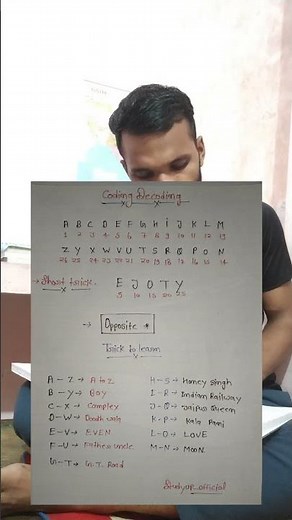 Coding Decoding
A B C D E F G H I J K L M
1 2 3 4 5 6 7 8 9 10 11 12 13
Z Y X W V U T S R Q P O N
26 25 24 23 22 21 20 19 18 17 16 15 14
Short trick
E J O T Y
5 10 15 20 25
→ Opposite
Trick to learn
A - Z → A to Z
B - Y → Boy
C - X → Complex
D - W →
E - V → EVEN
F - U → Father uncle
G - T → G.T. Road
H - S → Honey Singh
I - R → Indian Railway
J - Q → Jaipur Queen
K - P → Kala Pani
L - O → LOVE
M - N → MOON
Studyup_official